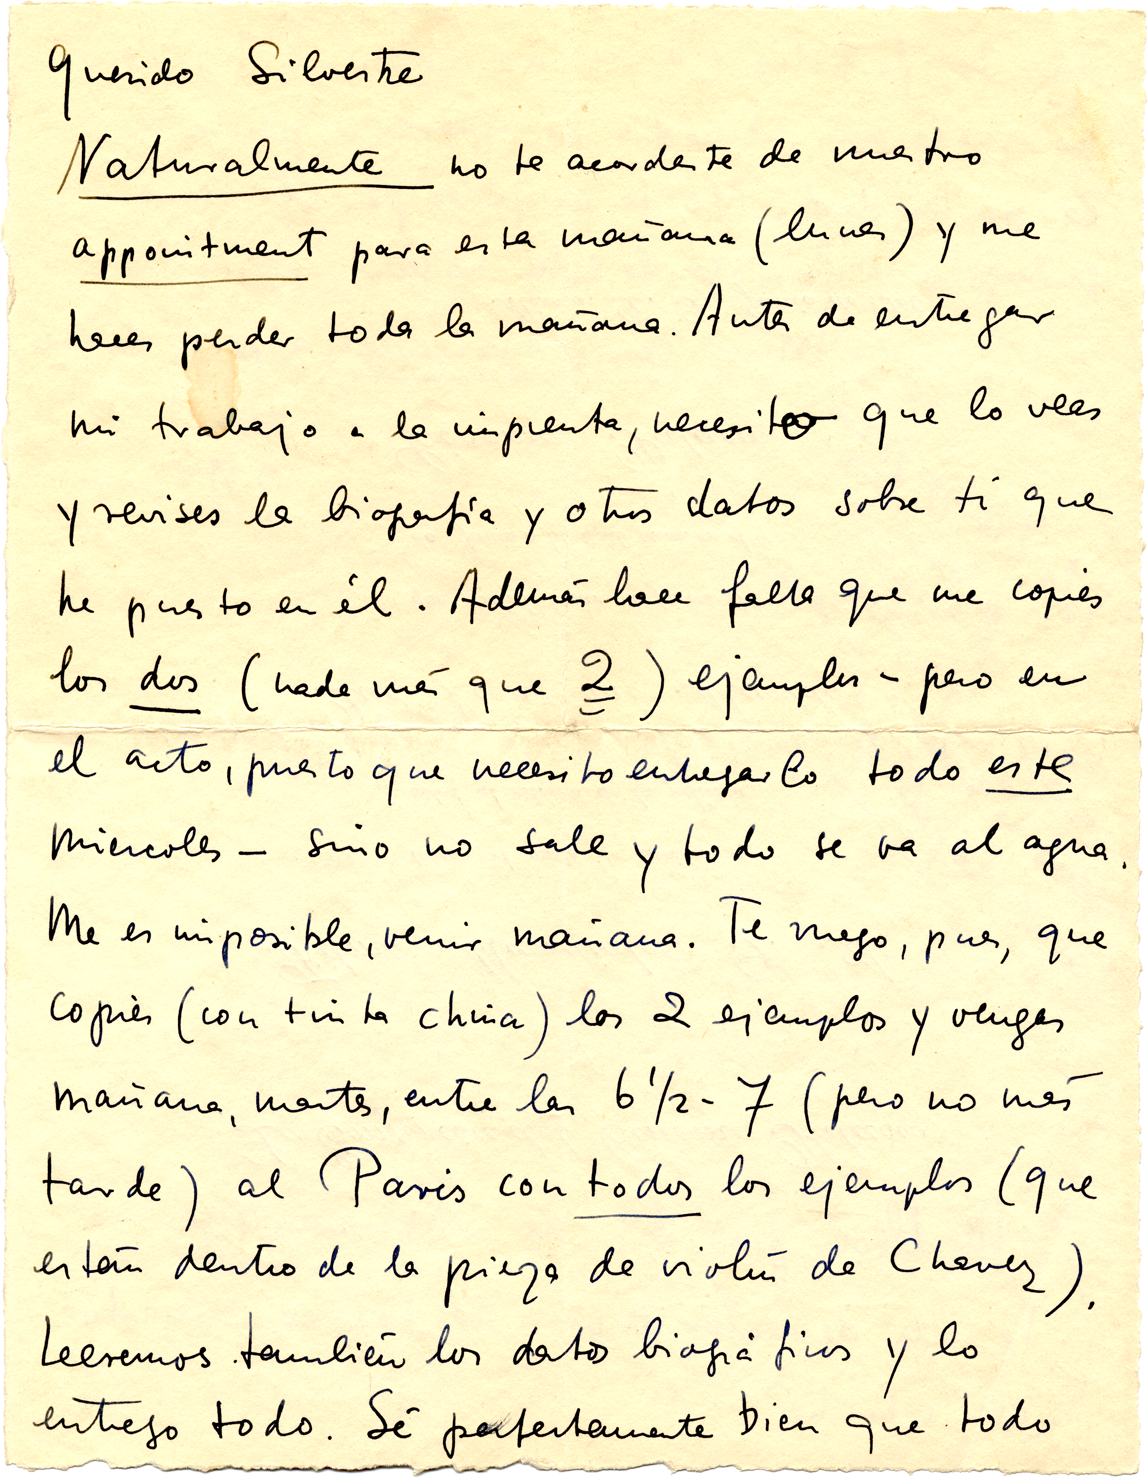 Querido Silvestre
Naturalmente no te acordaste de nuestro
appointment para esta mañana (lunes) y me
haces perder toda la mañana. Antes de entregar
mi trabajo a la imprenta, necesito que lo veas
y revises la biografía y otros datos sobre ti que
he puesto en él. Además hace falta que me copies
los dos (nada más que 2) ejemplos - pero en
el acto, puesto que necesito entregarlo todo este
miercoles - sino no sale y todo se va al agua.
Me es imposible, venir mañana. Te ruego, pues, que
copies (con tinta china) los 2 ejemplos y vengas
mañana, martes, entre las 6 1/2 - 7 (pero no más
tarde) al Paris con todos los ejemplos (que
están dentro de la pieza de violín de Chavez).
Leeremos también los datos biográficos y lo
entrego todo. Sé perfectamente bien que todo